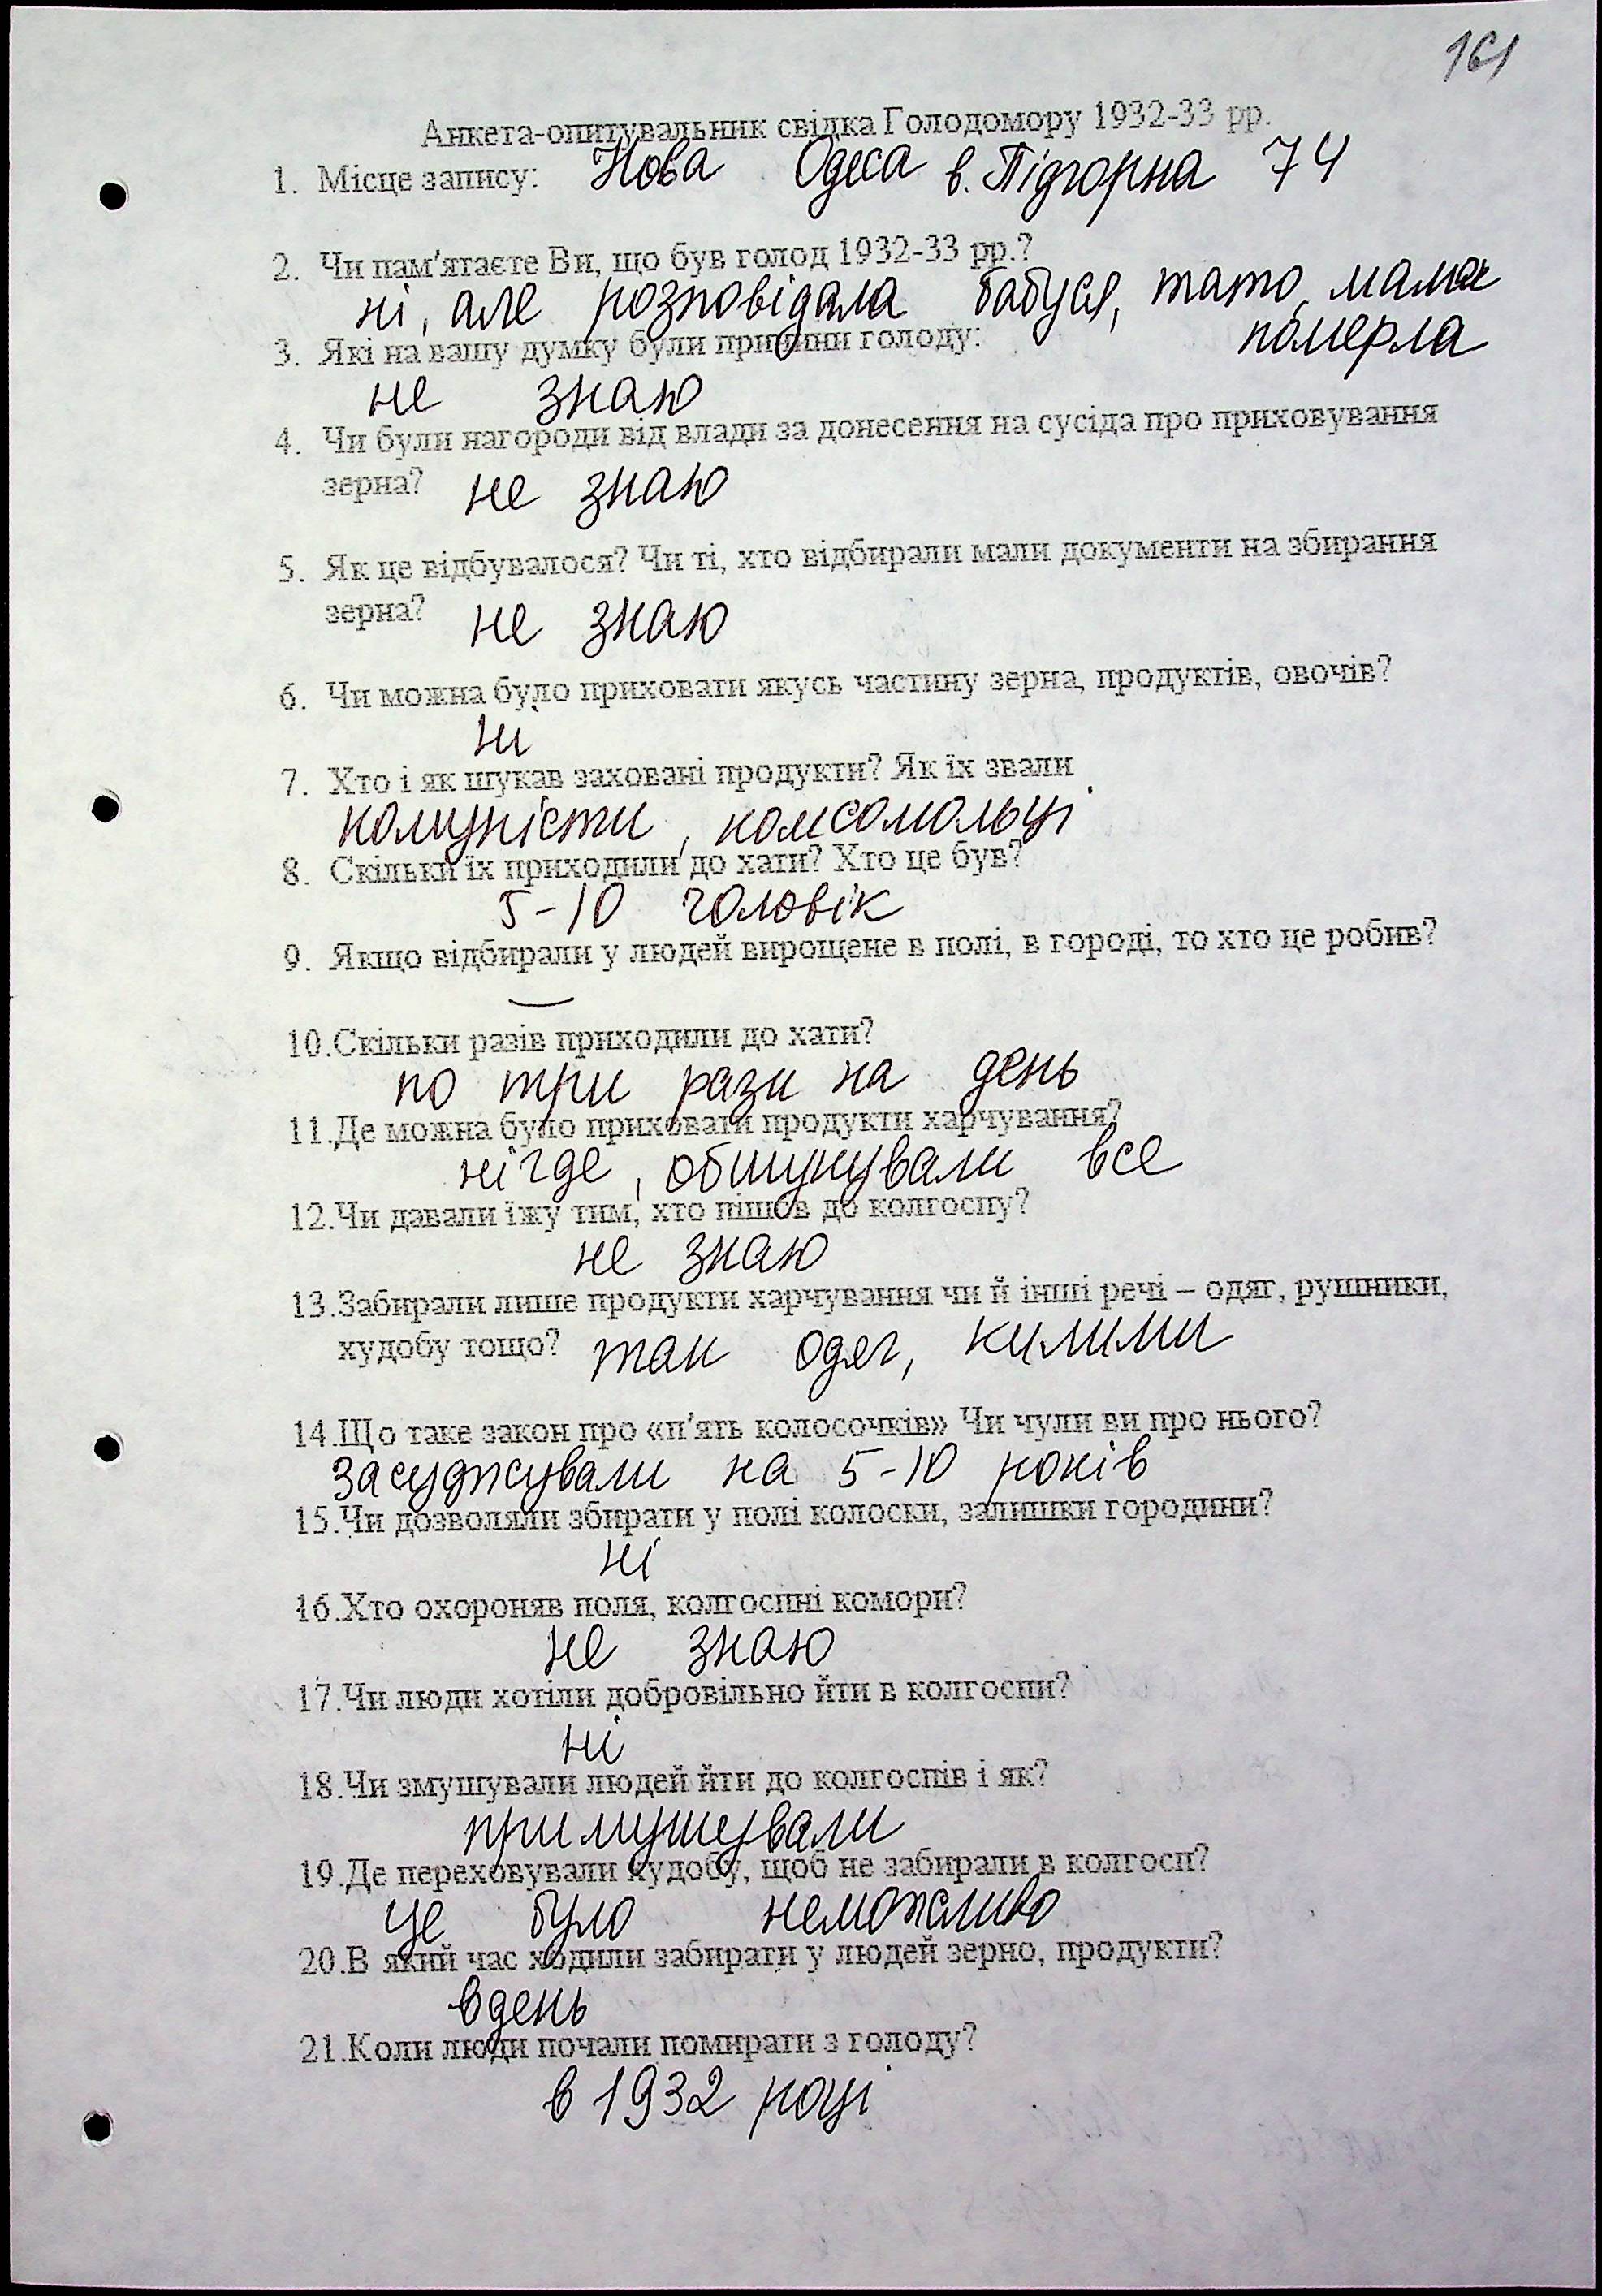 161
Анкета-опитувальник свідка Голодомору 1932-33 рр.
1. Місце запису: Нова Одеса в. Підгорна 74
2. Чи пам'ятаєте Ви, що був голод 1932-33 рр.?
ні, але розповідала бабуся, тато, мама
померла
3. Які на вашу думку були причини голоду:
не знаю
4. Чи були нагороди від влади за донесення на сусіда про приховування
зерна? не знаю
5. Як це відбувалося? Чи ті, хто відбирали мали документи на збирання
зерна? не знаю
6. Чи можна було приховати якусь частину зерна, продуктів, овочів?
ні
7. Хто і як шукав заховані продукти? Як їх звали
комуністи, комсомольці
8. Скільки їх приходили до хати? Хто це був?
5-10 чоловік
9. Якщо відбирали у людей вирощене в полі, в городі, то хто це робив?
—
10.Скільки разів приходили до хати?
по три рази на день
11.Де можна було приховати продукти харчування?
нігде, обшукували все
12.Чи давали їжу тим, хто пішов до колгоспу?
не знаю
13.Забирали лише продукти харчування чи й інші речі – одяг, рушники,
худобу тощо? так одяг, килими
14.Що таке закон про «п'ять колосочків» Чи чули ви про нього?
засуджували на 5-10 років
15.Чи дозволяли збирати у полі колоски, залишки городини?
ні
16.Хто охороняв поля, колгоспні комори?
не знаю
17.Чи люди хотіли добровільно йти в колгоспи?
ні
18.Чи змушували людей йти до колгоспів і як?
примушували
19.Де переховували худобу, щоб не забирали в колгосп?
це було неможливо
20.В який час ходили забирати у людей зерно, продукти?
вдень
21.Коли люди почали помирати з голоду?
в 1932 році